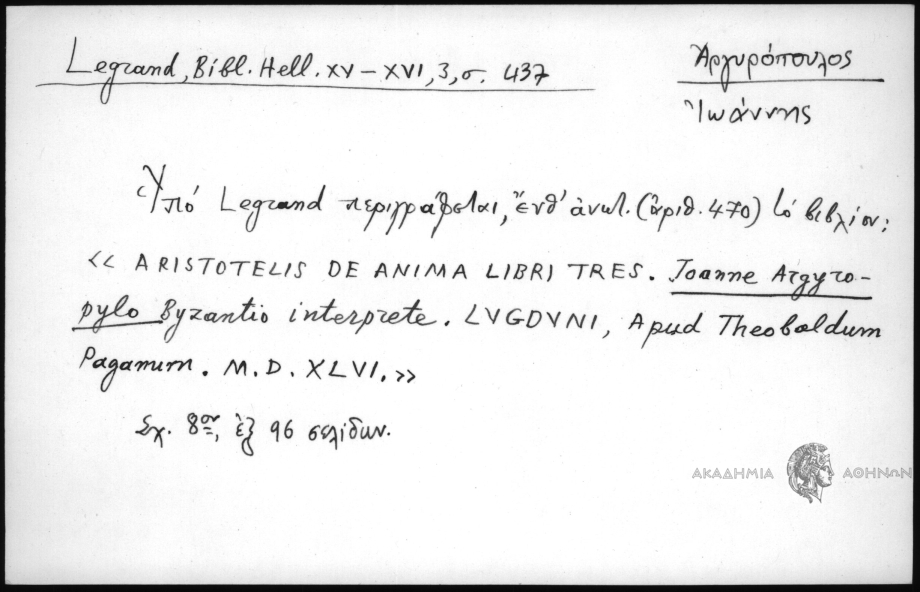 Legrand, Bibl. Hell. XV – XVI, 3, σ. 437
Ἀργυρόπουλος
Ἰωάννης
Ὑπό Legrand περιγράφεται, ἔνθ' ἀνωτ. (ἀριθ. 470) τό βιβλίον:
« ARISTOTELIS DE ANIMA LIBRI TRES. Joanne Argyro-
pylo Byzantio interprete. LVGDVNI, Apud Theobaldum
Paganum. M.D. XLVI. »
Σχ. 8ον, ἐξ 96 σελίδων.
ΑΚΑΔΗΜΙΑ ΑΘΗΝΩΝ